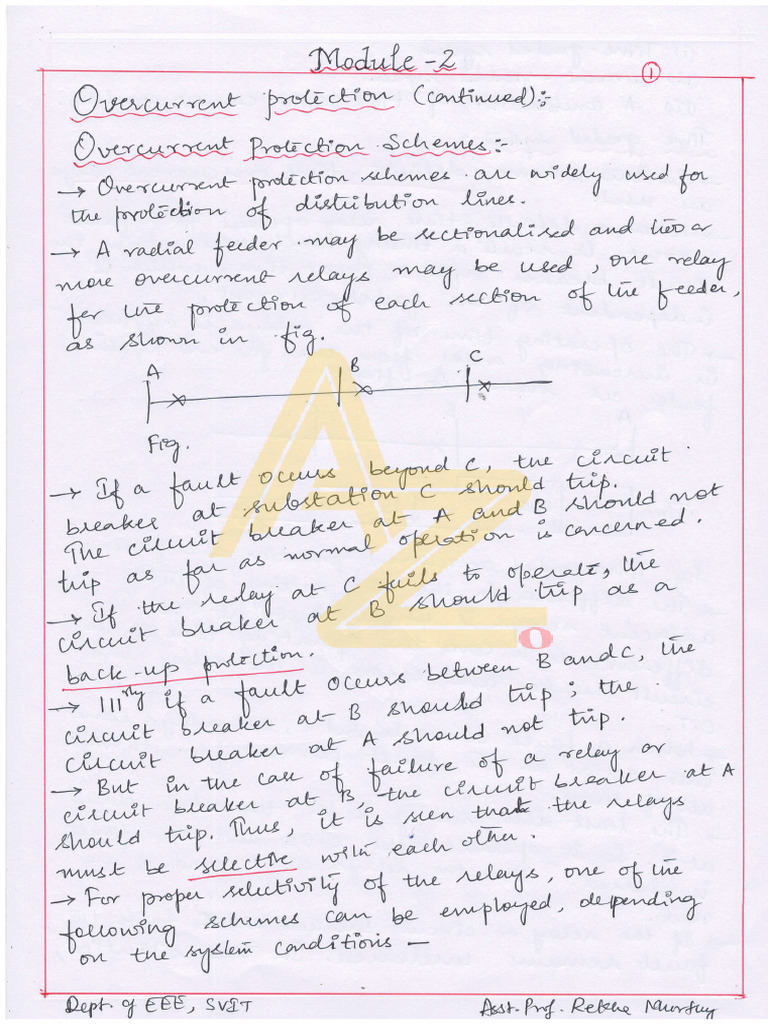 Module-2
1
Overcurrent protection (continued):-
Overcurrent Protection Schemes:-
→ Overcurrent protection schemes are widely used for
the protection of distribution lines.
→ A radial feeder may be sectionalised and two or
more overcurrent relays may be used, one relay
for the protection of each section of the feeder,
as shown in fig.
A B C
Fig.
→ If a fault occurs beyond C, the circuit
breaker at substation C should trip.
The circuit breaker at A and B should not
trip as far as normal operation is concerned.
→ If the relay at C fails to operate, the
circuit breaker at B should trip as a
back-up protection.
→ |||rly if a fault occurs between B and C, the
circuit breaker at B should trip; the
circuit breaker at A should not trip.
→ But in the case of failure of a relay or
circuit breaker at B, the circuit breaker at A
should trip. Thus, it is seen that the relays
must be selective with each other.
→ For proper selectivity of the relays, one of the
following schemes can be employed, depending
on the system conditions —
Dept. of EEE, SVIT Asst. Prof. Rekha
AZ